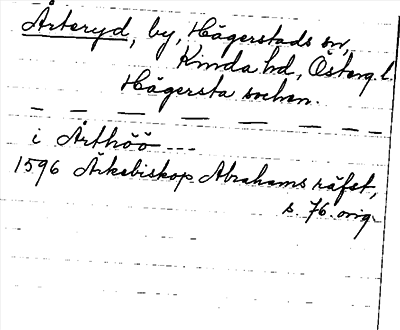 Årteryd, by, Hägerstads sn,
Kinda hd, Österg. l.
Hägersta sochen.
— — — — — — — — —
i Årthöö ---
1596 Ärkebiskop Abrahams räfst,
s. 76. orig.